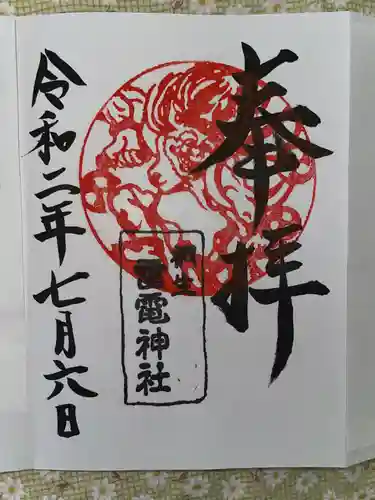 奉拝
桐生
雷電神社
令和二年七月六日